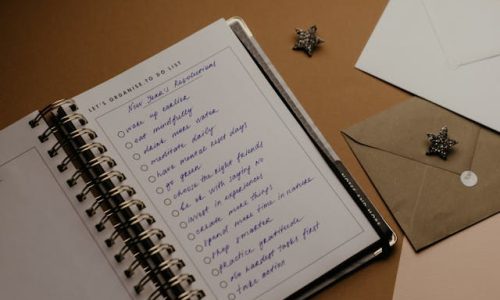 LET'S ORGANISE TO DO LIST
New Year's Resolutions
wake up earlier
eat mindfully
drink more water
meditate daily
have mental reset days
go green
choose the right friends
be ok with saying No
invest in experiences
create more things
spend more time in nature
shop smarter
practice gratitude
do hardest tasks first
take action